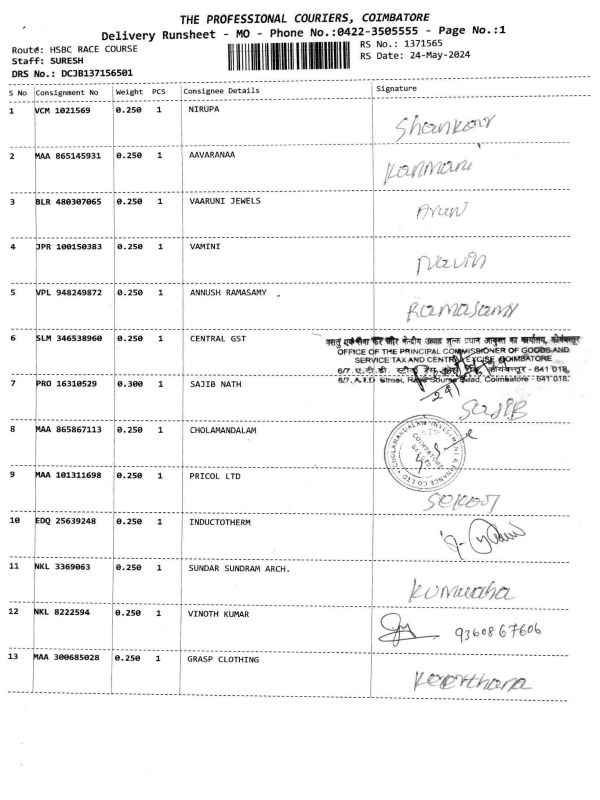 THE PROFESSIONAL COURIERS, COIMBATORE
Delivery Runsheet - MO - Phone No.:0422-3505555 - Page No.:1
Route: HSBC RACE COURSE
RS No.: 1371565
Staff: SURESH
RS Date: 24-May-2024
DRS No.: DCJB137156501
S No Consignment No Weight PCS Consignee Details Signature
1 VCM 1021569 0.250 1 NIRUPA Shankar
2 MAA 865145931 0.250 1 AAVARANAA Kanmani
3 BLR 480307065 0.250 1 VAARUNI JEWELS Arun
4 JPR 100150383 0.250 1 VAMINI Navin
5 VPL 948249872 0.250 1 ANNUSH RAMASAMY Ramasamy
6 SLM 346538960 0.250 1 CENTRAL GST
OFFICE OF THE PRINCIPAL COMMISSIONER OF GOODS AND
SERVICE TAX AND CENTRAL EXCISE, COIMBATORE
6/7, A.T.D. Street, Race Course Road, Coimbatore - 641 018.
7 PRO 16310529 0.300 1 SAJIB NATH Sajib
8 MAA 865867113 0.250 1 CHOLAMANDALAM
CHOLAMANDALAM INVESTMENT & FINANCE CO LTD
COIMBATORE
9 MAA 101311698 0.250 1 PRICOL LTD
10 EDQ 25639248 0.250 1 INDUCTOTHERM
11 NKL 3369063 0.250 1 SUNDAR SUNDRAM ARCH.
12 NKL 8222594 0.250 1 VINOTH KUMAR 9360867606
13 MAA 300685028 0.250 1 GRASP CLOTHING Keerthana